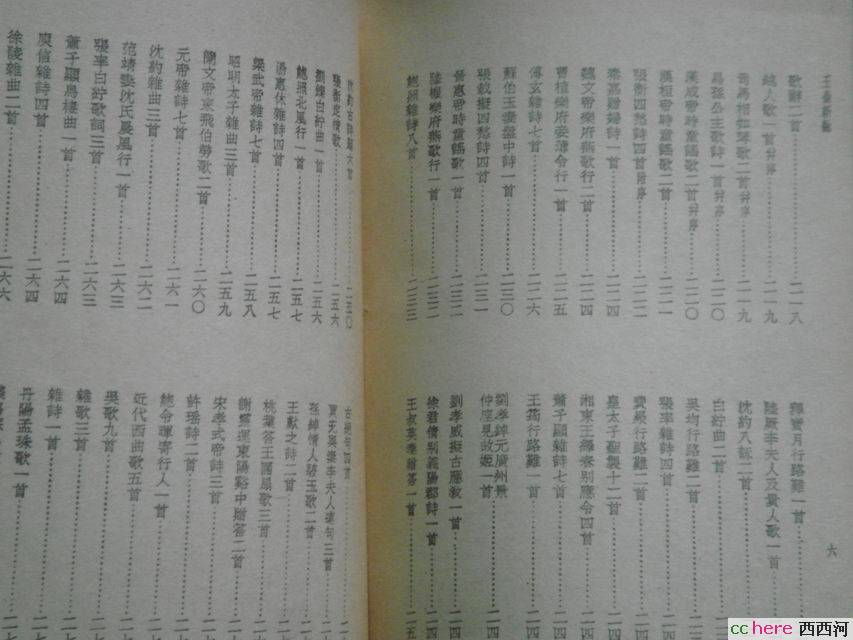 玉臺新詠
歌辭二首……二一八
越人歌一首幷序……二一九
司馬相如琴歌二首幷序……二一九
烏孫公主歌詩一首幷序……二二〇
漢成帝時童謠歌二首幷序……二二〇
漢桓帝時童謠歌二首……二二一
張衡四愁詩四首附序……二二二
秦嘉贈婦詩一首……二二四
魏文帝樂府燕歌行二首……二二四
曹植樂府妾薄命行一首……二二五
傅玄雜詩七首……二二六
蘇伯玉妻盤中詩一首……二三〇
張載擬四愁詩四首……二三一
晉惠帝時童謠歌一首……二三二
陸機樂府燕歌行一首……二三二
鮑照雜詩八首……二三三
釋寶月行路難一首
陸厥李夫人及貴人歌一首
沈約八詠二首
白紵曲二首
吳均行路難二首
張率雜詩四首
費昶行路難二首
皇太子聖製十二首
湘東王繹春別應令四首
蕭子顯雜詩七首
王筠行路難一首
劉孝綽元廣州景
仲座見故姬一首
劉孝威擬古應敎一首
徐君倩別義陽郡詩一首
王叔英婦贈答一首
六
張衡定情歌……二五六
劉鑠白紵曲一首……二五六
鮑照北風行一首……二五七
湯惠休雜詩四首……二五七
梁武帝雜詩七首……二五八
昭明太子雜曲三首……二五九
簡文帝東飛伯勞歌二首……二六〇
元帝雜詩七首……二六一
沈約雜曲三首……二六二
范靖妻沈氏晨風行一首……二六三
張率白紵歌詞三首……二六三
蕭子顯烏棲曲一首……二六四
庾信雜詩四首……二六四
徐陵雜曲二首……二六六
古絕句四首
賈充與妻李夫人連句三首
孫綽情人碧玉歌二首
王獻之詩二首
桃葉答王團扇歌三首
謝靈運東陽谿中贈答二首
宋孝武帝詩三首
許瑤詩二首
鮑令暉寄行人一首
近代西曲歌五首
吳歌九首
雜歌三首
雜詩一首
丹陽孟珠歌一首
cchere 西西河